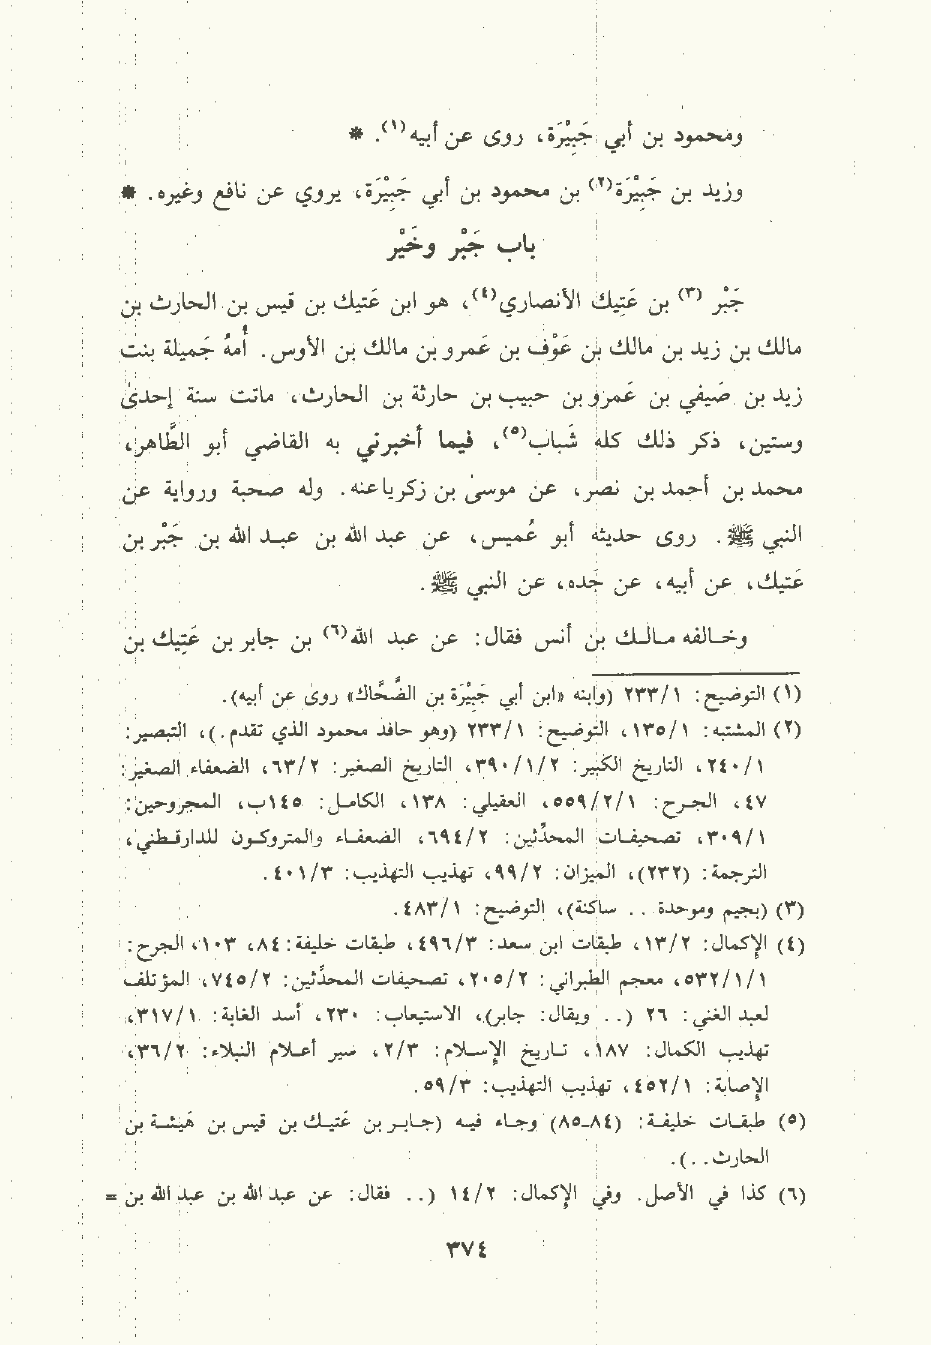 ومحمود بن أبي جَبِيْرَة، روى عن أبيه(١). *
وزيد بن جَبِيْرَة(٢) بن محمود بن أبي جَبِيْرَة، يروي عن نافع وغيره. *
باب جَبْر وخَيْر
جَبْر (٣) بن عَتِيك الأنصاري(٤)، هو ابن عَتيك بن قيس بن الحارث بن
مالك بن زيد بن مالك بن عَوْف بن عَمرو بن مالك بن الأوس. أُمهُ جَميلة بنت
زيد بن صَيفي بن عَمرو بن حبيب بن حارثة بن الحارث، ماتت سنة إحدىٰ
وستين، ذكر ذلك كله شَباب(٥)، فيما أخبرني به القاضي أبو الطَّاهر،
محمد بن أحمد بن نصر، عن موسىٰ بن زكريا عنه. وله صحبة ورواية عن
النبي ﷺ. روى حديثه أبو عُميس، عن عبد الله بن عبد الله بن جَبْر بن
عَتيك، عن أبيه، عن جَده، عن النبي ﷺ.
وخالفه مالك بن أنس فقال: عن عبد الله(٦) بن جابر بن عَتِيك بن
(١) التوضيح: ٢٣٣/١ (وابنه «ابن أبي جَبِيْرَة بن الضَّحَّاك» روىٰ عن أبيه).
(٢) المشتبه: ١٣٥/١، التوضيح: ٢٣٣/١ (وهو حافد محمود الذي تقدم.)، التبصير:
٢٤٠/١، التاريخ الكَبير: ٣٩٠/١/٢، التاريخ الصغير: ٦٣/٢، الضعفاء الصغير:
٤٧، الجرح: ٥٥٩/٢/١، العقيلي: ١٣٨، الكامل: ١٤٥ب، المجروحين:
٣٠٩/١، تصحيفات المحدِّثين: ٦٩٤/٢، الضعفاء والمتروكون للدارقطني،
الترجمة: (٢٣٢)، الميزان: ٩٩/٢، تهذيب التهذيب: ٤٠١/٣.
(٣) (بجيم وموحدة .. ساكنة)، التوضيح: ٤٨٣/١.
(٤) الإكمال: ١٣/٢، طبقات ابن سعد: ٤٩٦/٣، طبقات خليفة: ٨٤، ١٠٣، الجرح:
٥٣٢/١/١، معجم الطبراني: ٢٠٥/٢، تصحيفات المحدِّثين: ٧٤٥/٢، المؤتلف
لعبد الغني: ٢٦ (.. ويقال: جابر)، الاستيعاب: ٢٣٠، أسد الغابة: ٣١٧/١،
تهذيب الكمال: ١٨٧، تاريخ الإسلام: ٢/٣، سير أعلام النبلاء: ٣٦/٢،
الإصابة: ٤٥٢/١، تهذيب التهذيب: ٥٩/٣.
(٥) طبقات خليفة: (٨٤-٨٥) وجاء فيه (جابر بن عَتيك بن قيس بن هَيشة بن
الحارث..).
(٦) كذا في الأصل. وفي الإكمال: ١٤/٢ (.. فقال: عن عبد الله بن عبد الله بن =
٣٧٤